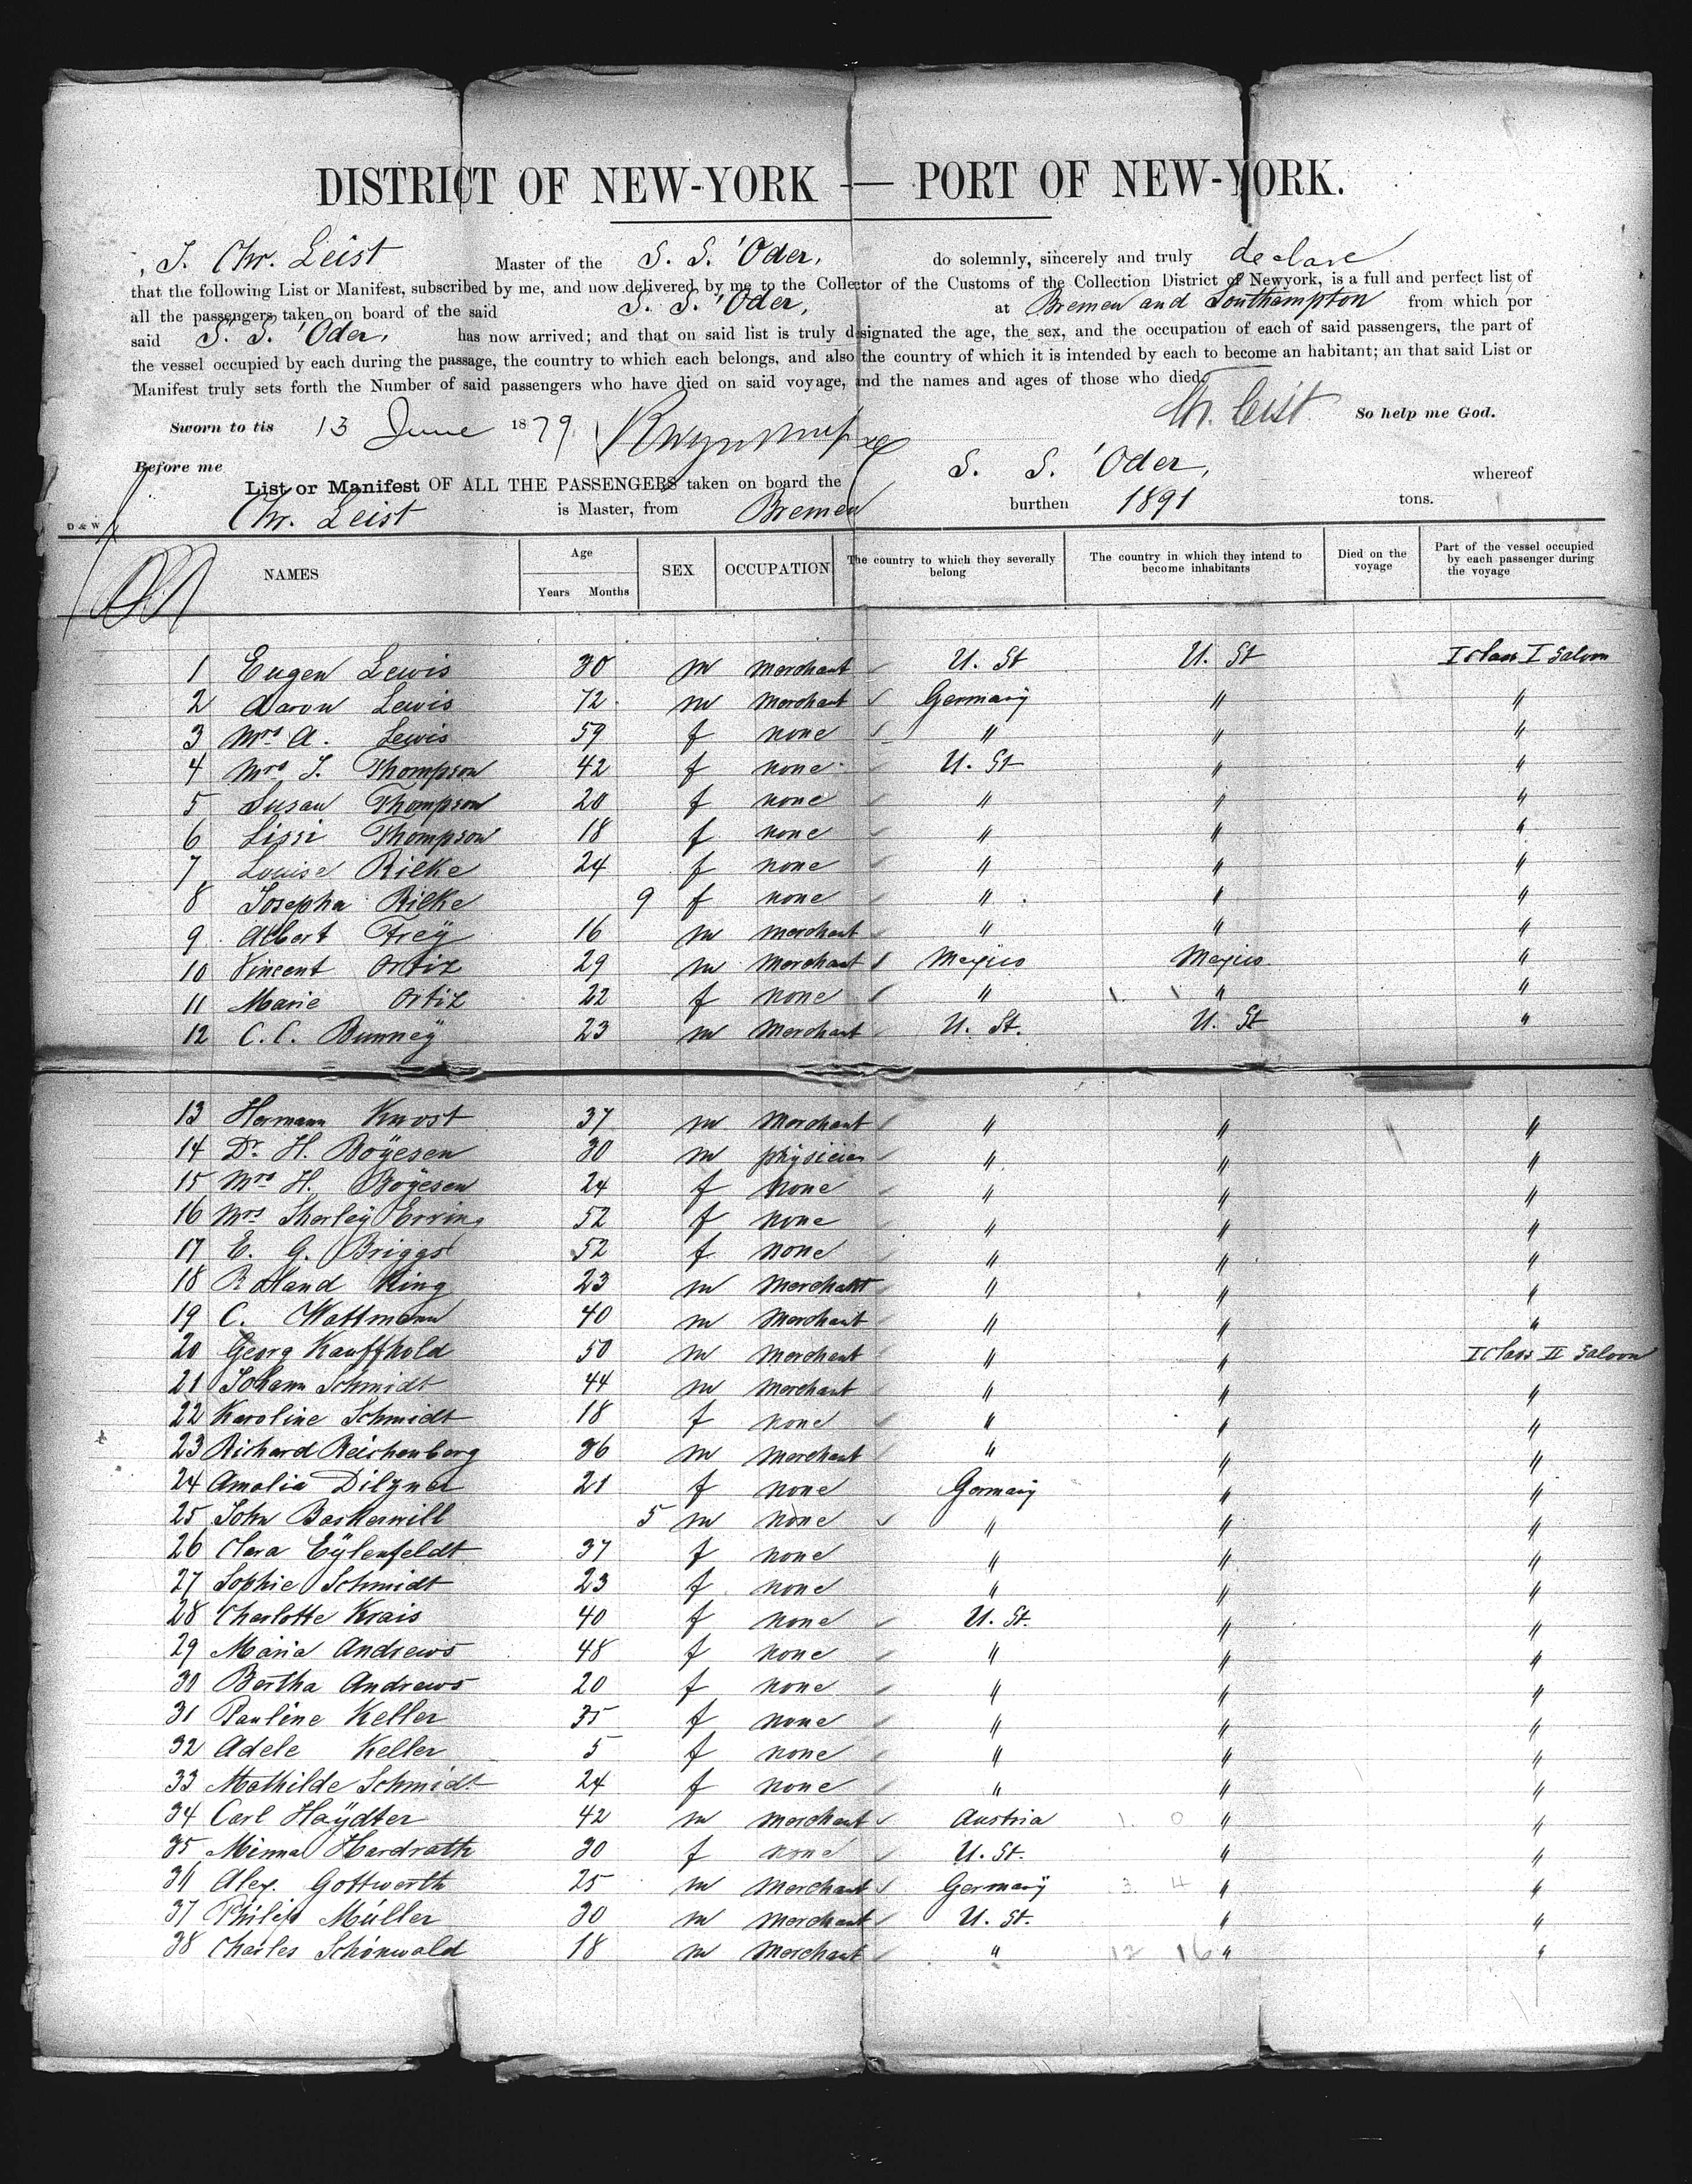 DISTRICT OF NEW-YORK — PORT OF NEW-YORK.
, I. Chr. Leist Master of the S. S. "Oder, do solemnly, sincerely and truly declare
that the following List or Manifest, subscribed by me, and now delivered by me to the Collector of the Customs of the Collection District of Newyork, is a full and perfect list of
all the passengers taken on board of the said S. S. "Oder, at Bremen and Southampton from which por
said S. S. "Oder, has now arrived; and that on said list is truly designated the age, the sex, and the occupation of each of said passengers, the part of
the vessel occupied by each during the passage, the country to which each belongs, and also the country of which it is intended by each to become an habitant; an that said List or
Manifest truly sets forth the Number of said passengers who have died on said voyage, and the names and ages of those who died.
Sworn to tis 13 June 1879 Chr. Leist So help me God.
Before me S. S. "Oder, whereof
List or Manifest OF ALL THE PASSENGERS taken on board the
Chr. Leist is Master, from Bremen burthen 1891 tons.
D & W
NAMES Age Years Months SEX OCCUPATION The country to which they severally belong The country in which they intend to become inhabitants Died on the voyage Part of the vessel occupied by each passenger during the voyage
1 Eugen Lewis 30 m Merchant U. St U. St I class I Saloon
2 Aaron Lewis 72 m Merchant Germany " "
3 Mrs A. Lewis 59 f none " " "
4 Mrs J. Thompson 42 f none U. St " "
5 Susan Thompson 20 f none " " "
6 Lissi Thompson 18 f none " " "
7 Louise Rilke 24 f none " " "
8 Josepha Rilke 9 f none " " "
9 Albert Freÿ 16 m Merchant " " "
10 Vincent Ortiz 29 m Merchant Mexico Mexico "
11 Marie Ortiz 22 f none " " "
12 C. C. Bunneÿ 23 m Merchant U. St. U. St "
13 Hermann Knost 37 m Merchant " " "
14 Dr. H. Böyesen 30 m physician " " "
15 Mrs H. Böyesen 24 f none " " "
16 Mrs Sherleÿ Erving 52 f none " " "
17 E. G. Briggs 52 f none " " "
18 Roland King 23 m Merchant " " "
19 C. Wattmann 40 m Merchant " " "
20 Georg Kauffhold 50 m Merchant " " I class II Saloon
21 Johann Schmidt 44 m Merchant " " "
22 Karoline Schmidt 18 f none " " "
23 Richard Reichenberg 36 m Merchant " " "
24 Amalia Dilzner 21 f none Germany " "
25 John Baskerwill 5 m none " " "
26 Clara Eÿlenfeldt 37 f none " " "
27 Sophie Schmidt 23 f none " " "
28 Charlotte Krais 40 f none U. St. " "
29 Maria Andrews 48 f none " " "
30 Bertha Andrews 20 f none " " "
31 Pauline Keller 35 f none " " "
32 Adele Keller 5 f none " " "
33 Mathilde Schmidt 24 f none " " "
34 Carl Haÿdter 42 m Merchant Austria 1. 0 " "
35 Minna Hardrath 30 f none U. St. " "
36 Alex. Gottwerth 25 m Merchant Germany 3. 4 " "
37 Philip Müller 30 m Merchant U. St. " "
38 Charles Schönwald 18 m Merchant " 12 16 " "